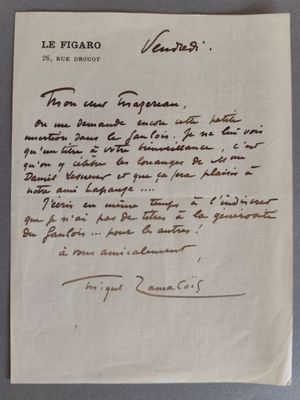 LE FIGARO
26, RUE DROUOT
Vendredi.
Mon cher Mazereau,
On me demande encore cette petite
insertion dans le Gaulois. Je ne lui vois
qu'un titre à votre bienveillance, c'est
qu'on y célèbre les louanges de Mme
Daniel Lesueur et que ça fera plaisir à
notre ami Lapauze ....
J'écris en même temps à l'indiscret
que je n'ai pas de titres à la générosité
du Gaulois ... pour les autres !
à vous amicalement
Miguel Zamacoïs